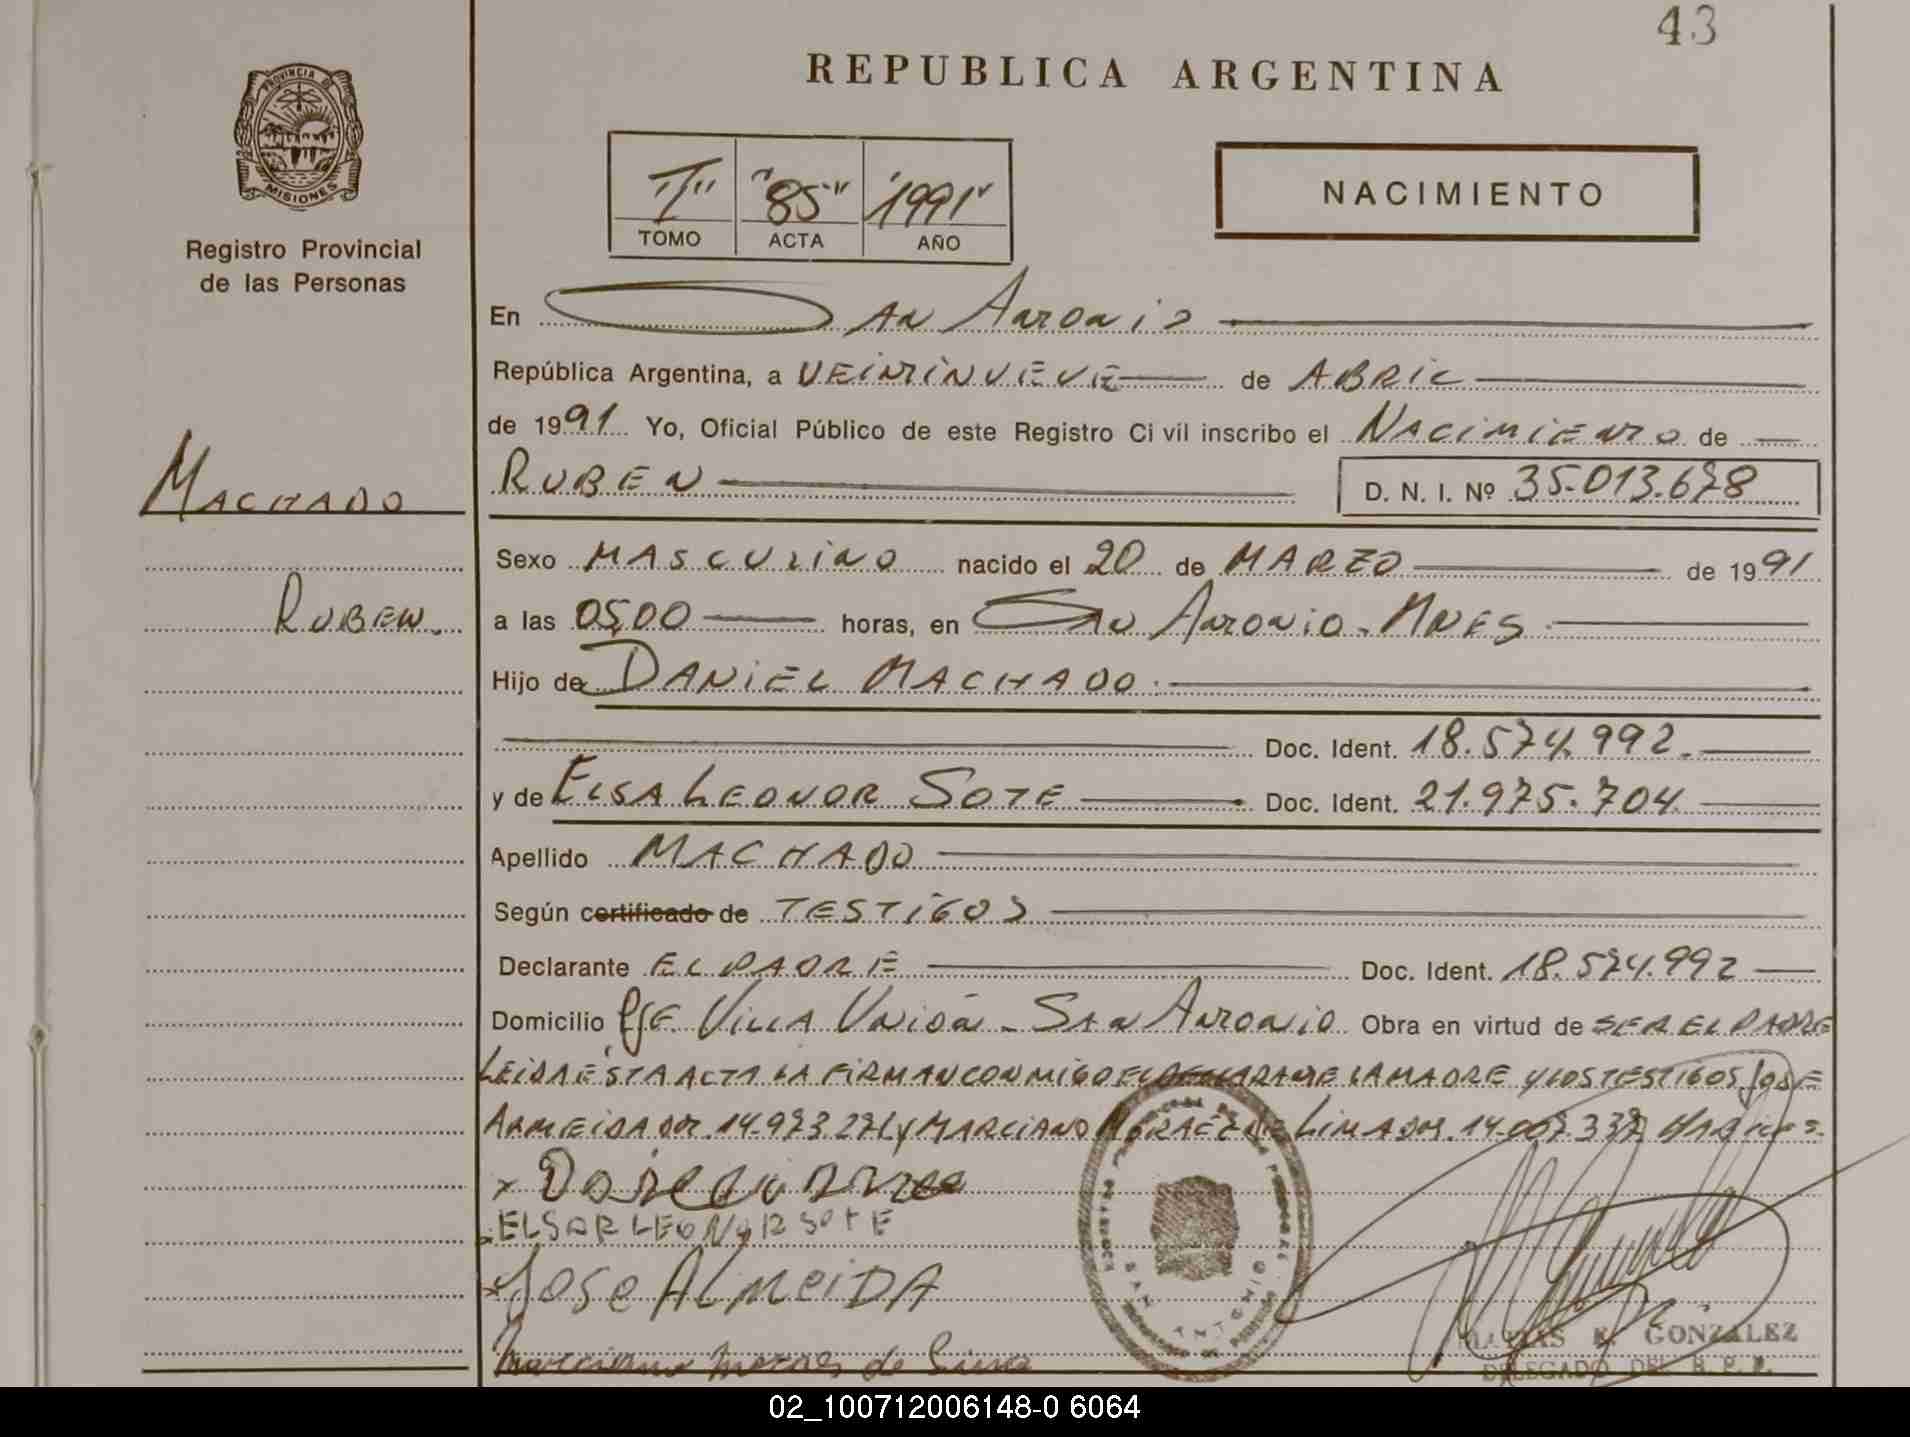 43
REPUBLICA ARGENTINA
PROVINCIA DE
MISIONES
Registro Provincial
de las Personas
"I" "85" "1991"
TOMO ACTA AÑO
NACIMIENTO
En San Antonio
República Argentina, a VEINTINUEVE de ABRIL
de 1991 Yo, Oficial Público de este Registro Ci vil inscribo el NACIMIENTO de
MACHADO
RUBEN D. N. I. Nº 35.013.678
Sexo MASCULINO nacido el 20 de MARZO de 1991
RUBEN.
a las 05,00 horas, en San Antonio - Mnes
Hijo de DANIEL MACHADO
Doc. Ident. 18.574.992.
y de ELSA LEONOR SOTE Doc. Ident. 21.975.704
Apellido MACHADO
Según certificado de TESTIGOS
Declarante EL PADRE Doc. Ident. 18.574.992
Domicilio Pje. Villa Unión - San Antonio Obra en virtud de SER EL PADRE
LEIDA ESTA ACTA LA FIRMAN CONMIGO EL DECLARANTE LA MADRE Y LOS TESTIGOS JOSE
14.973.271 y MARCIANO MORAEZ DE LIMA
ELSAR LEONOR SOTE
JOSE ALMEIDA
Marciano Moraes de Lima
SAN ANTONIO
MATIAS E. GONZALEZ
DELEGADO DEL R. P. P.
02_100712006148-0 6064